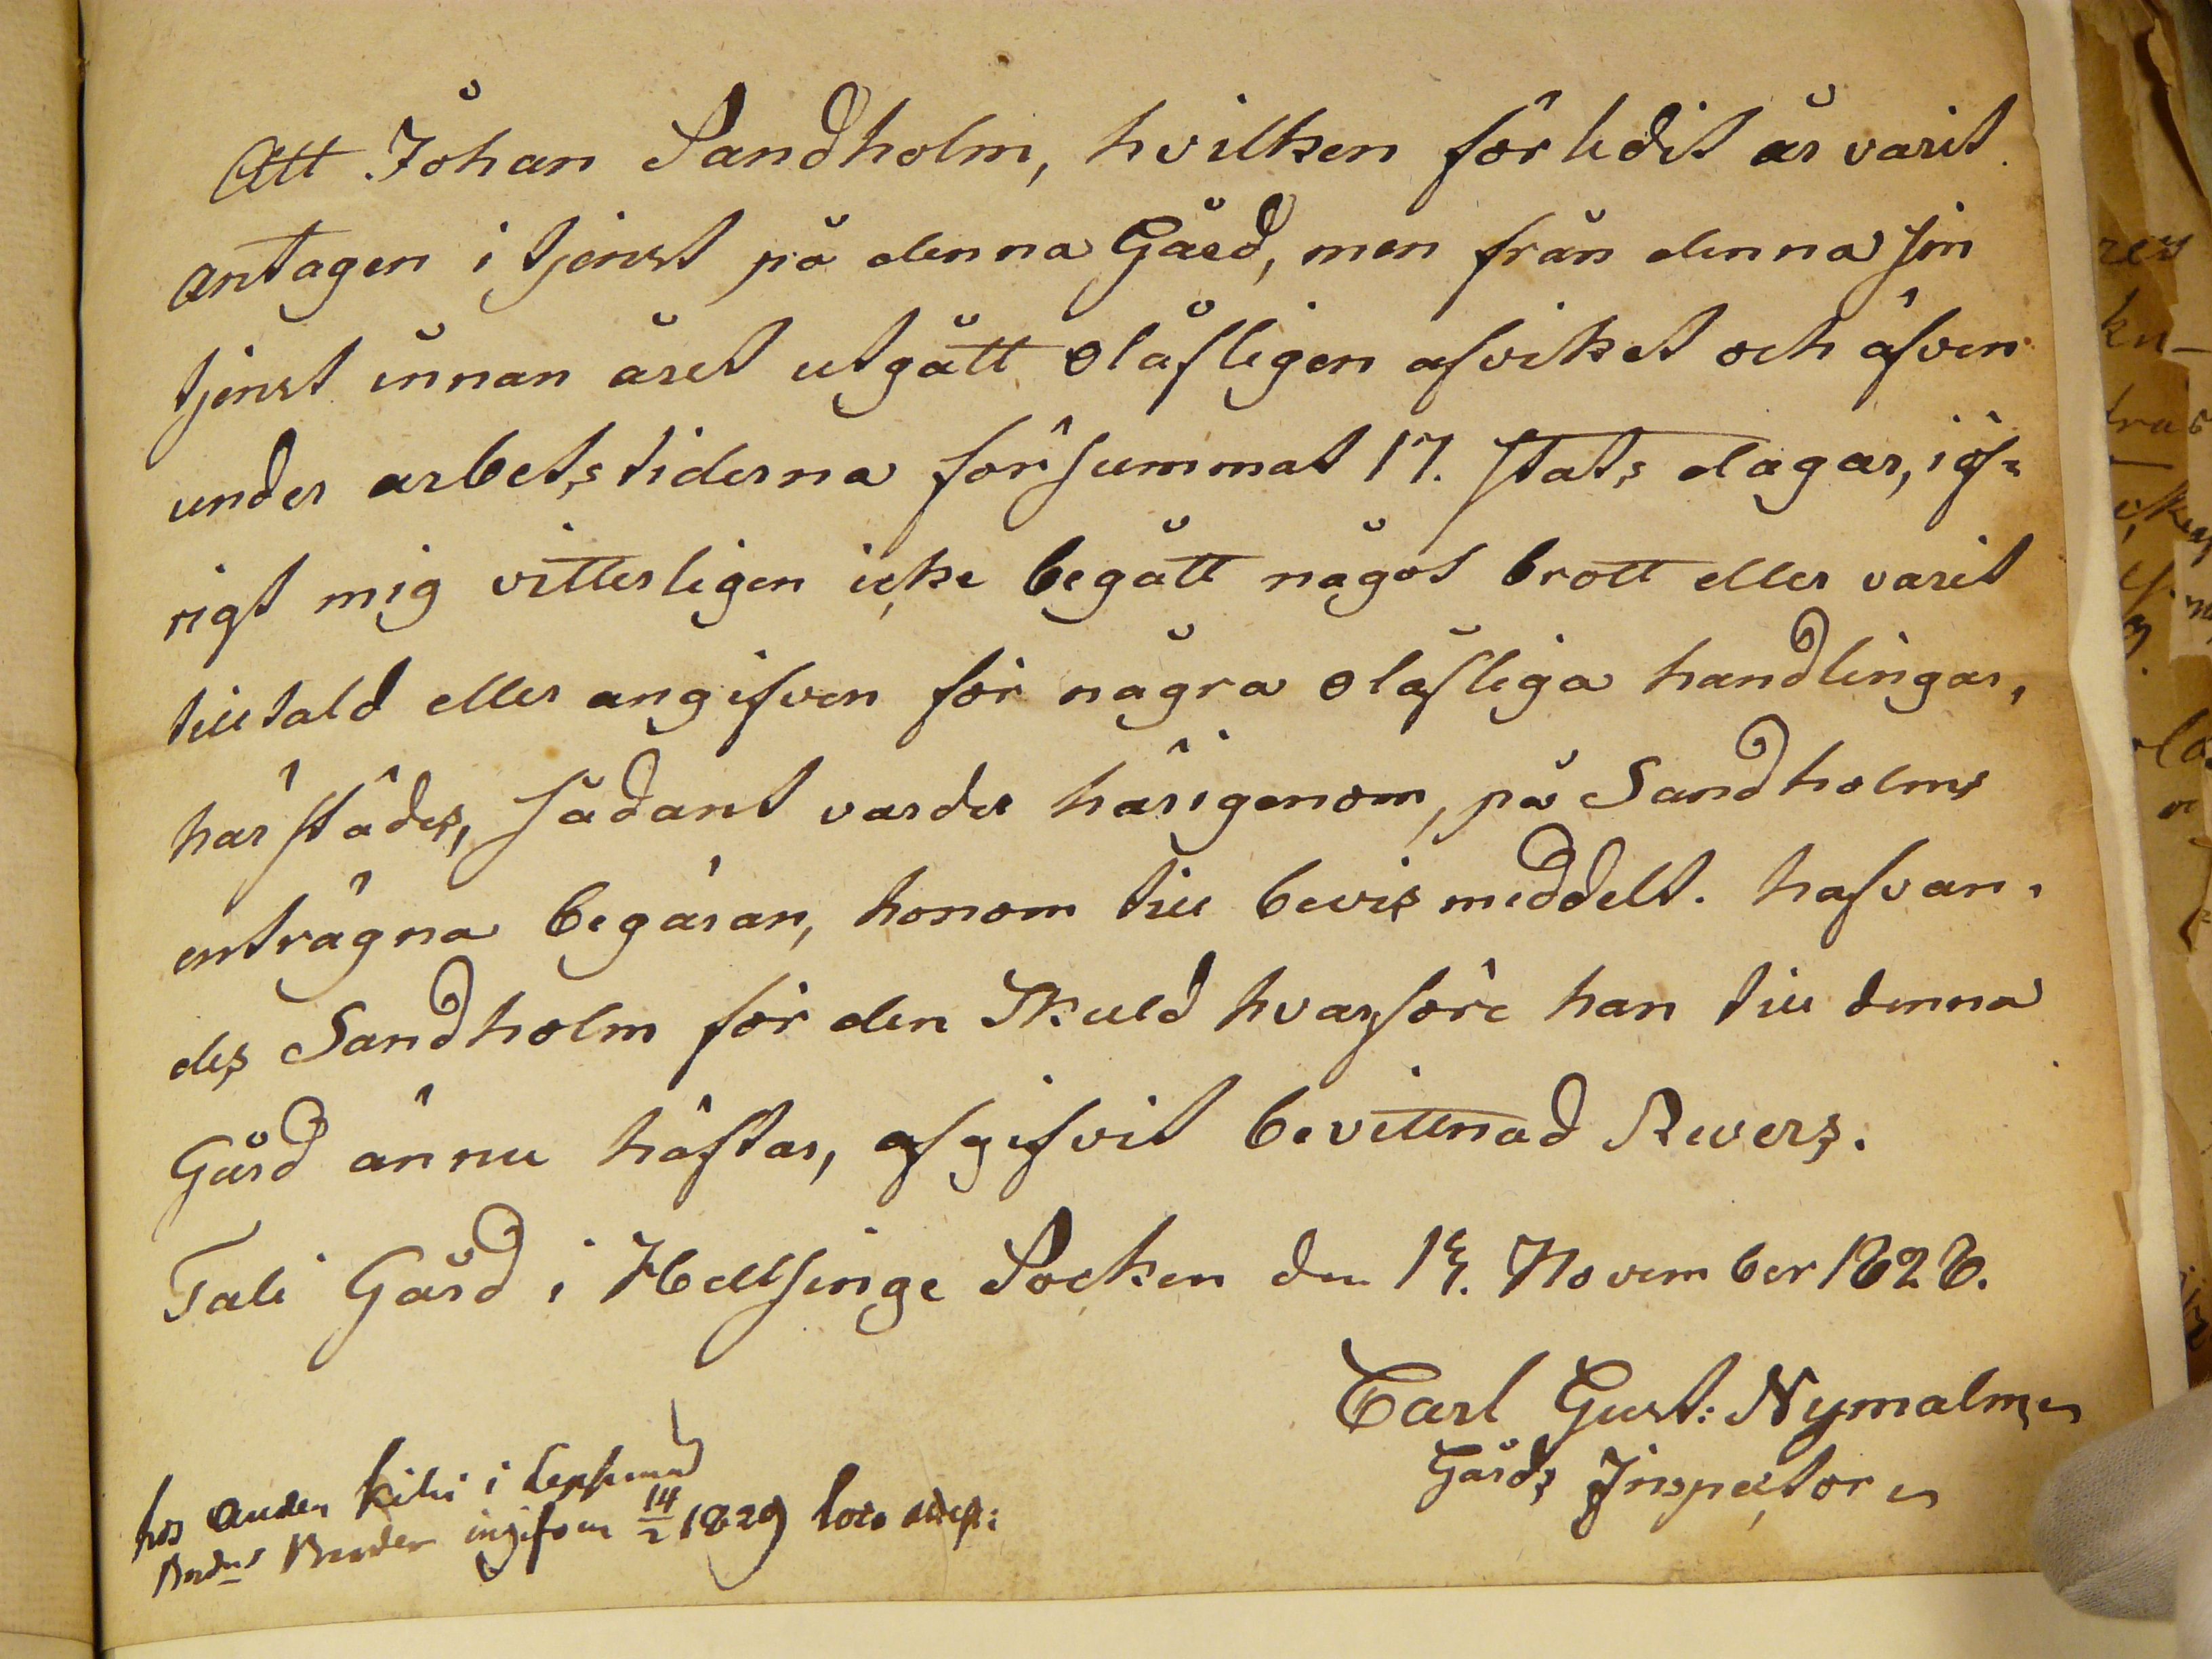 Att Johan Sandholm, hvilken förledit år varit
antagen i tjenst på denna Gård, men från denna sin
tjenst innan året utgått olåfligen afviket och äfven
under arbetstiderna försummat 17. Stats dagar, iöf=
rigt mig vitterligen icke begått något brott eller varit
tilltald eller angifven för några olåfliga handlingar,
härstädes, sådant varder härigenom, på Sandholms
enträgna begäran, honom till bevis meddelt. hafvan,
des Sandholm för den Skuld hvarföre han till denna
Gård ännu häftar, afgifvit bevittnad Revers.
Tali Gård i Hellsinge Socken den November 1828.
Carl Gust: Nymalm
Gårds Inspector
hos i
ingifven 14/2 1829 loco